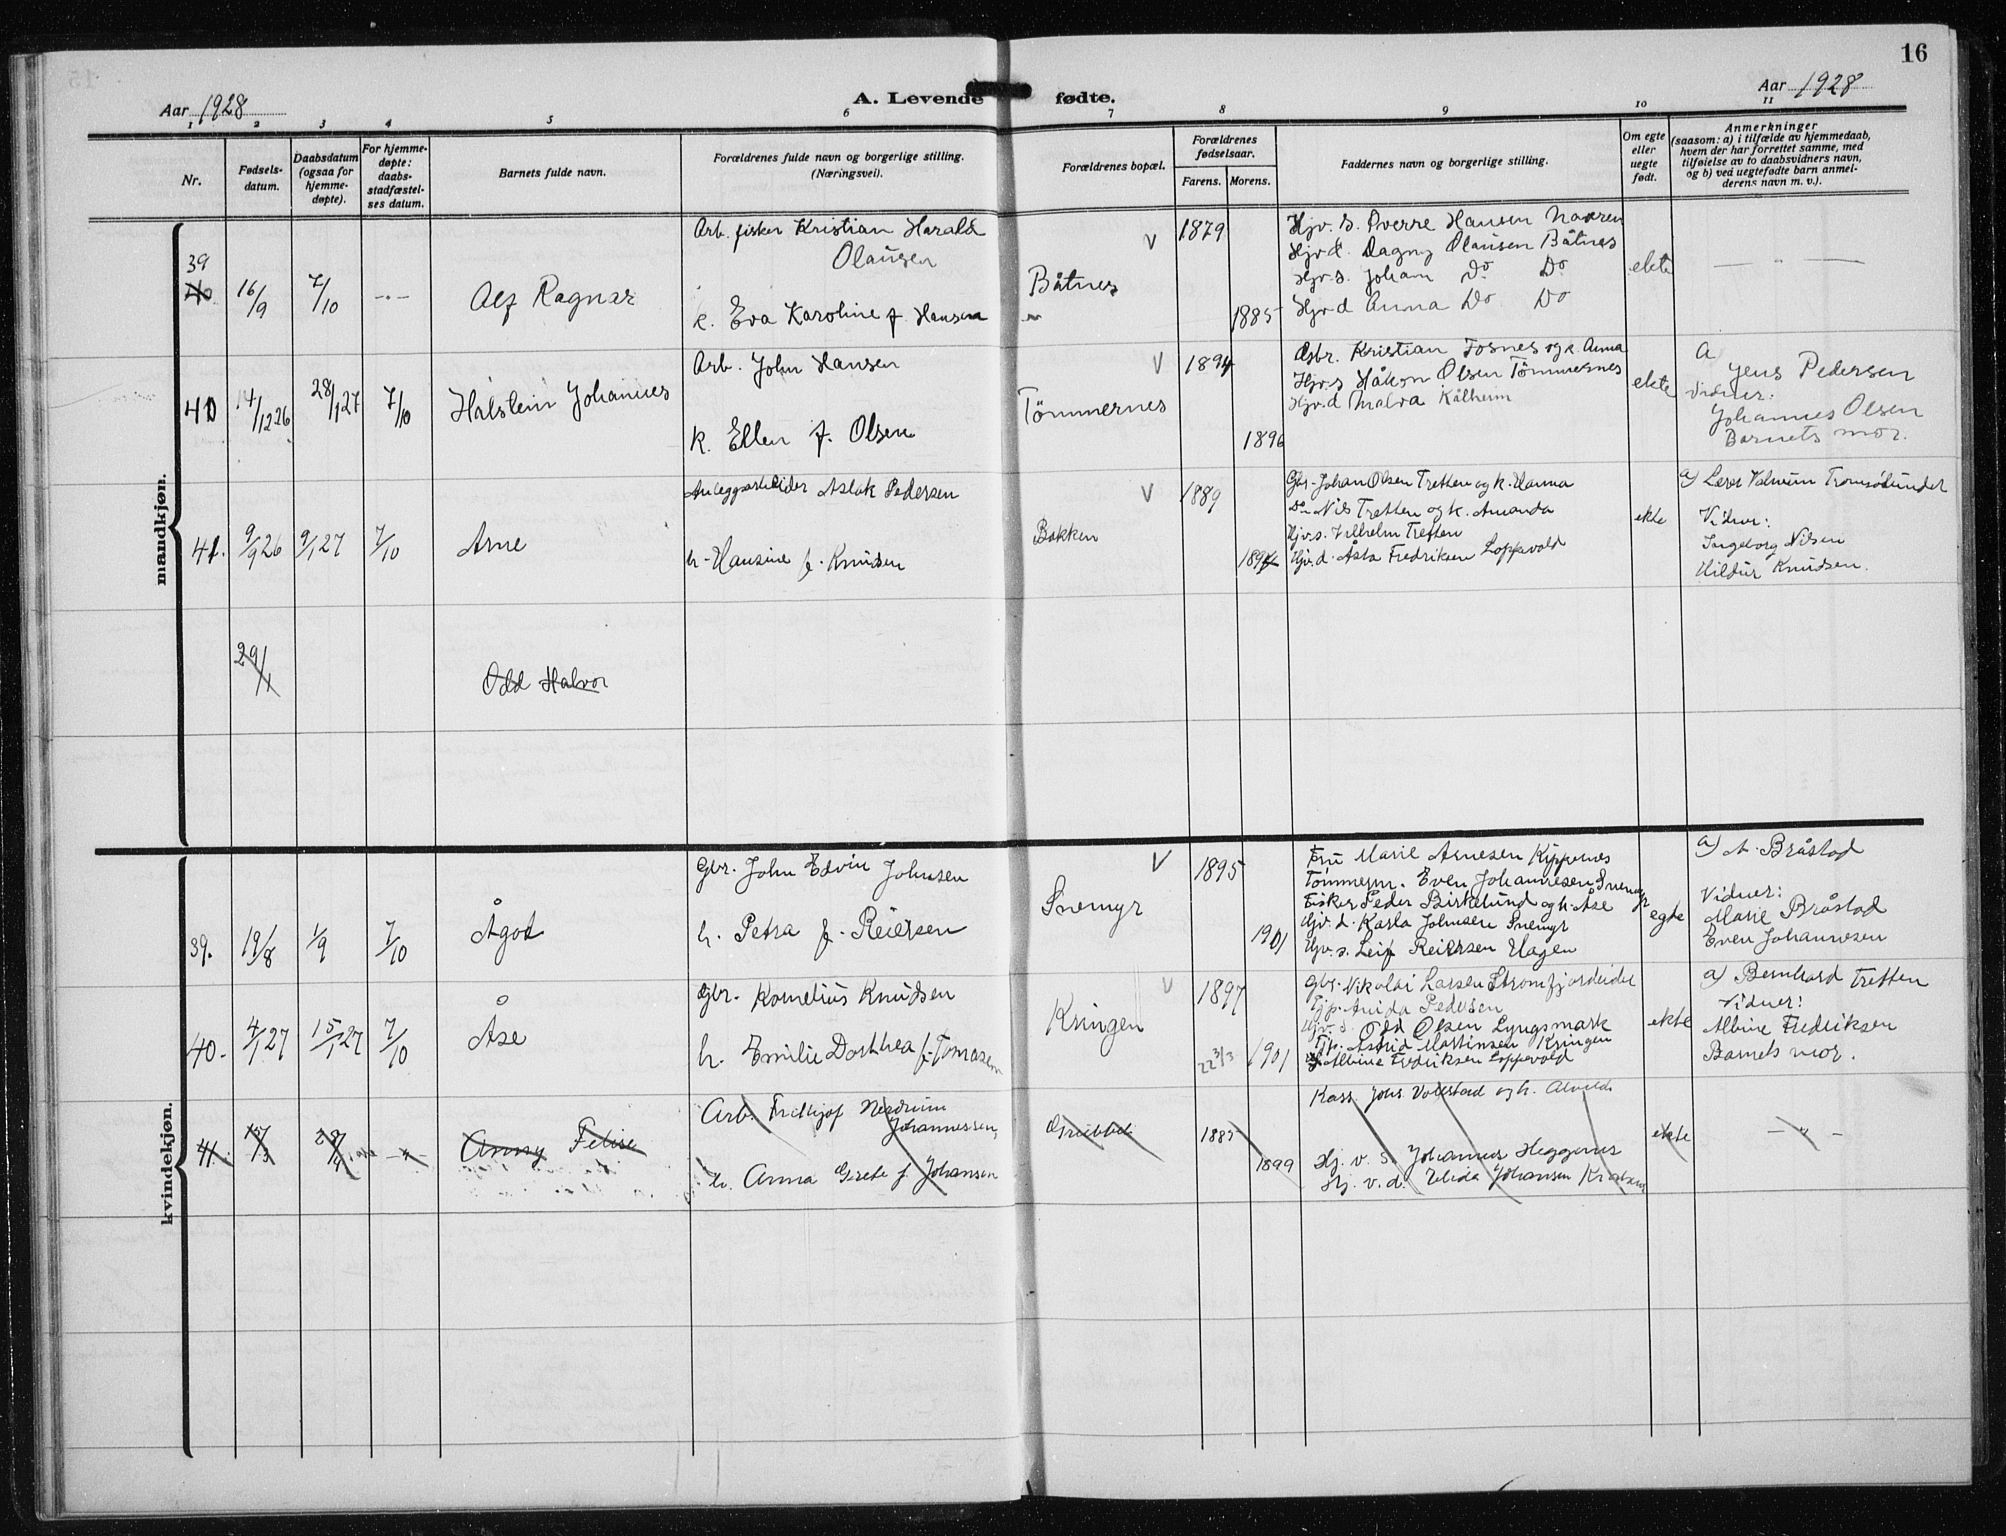 16
Aar 1928
A. Levende fødte.
Aar 1928
1 2 3 4 5 6 7 8 9 10 11
Nr.
Fødsels-
datum.
Daabsdatum
(ogsaa for
hjemme-
døpte).
For hjemme-
døpte:
daabs-
stadfæstel-
ses datum.
Barnets fulde navn.
Forældrenes fulde navn og borgerlige stilling.
(Næringsvei).
Forældrenes bopæl.
Forældrenes
fødselsaar.
Farens. Morens.
Faddernes navn og borgerlige stilling.
Om egte
eller
uegte
født.
Anmerkninger
(saasom: a) i tilfælde av hjemmedaab,
hvem der har forrettet samme, med
tilføielse av to daabsvidners navn,
og b) ved uegtefødte barn anmel-
derens navn m. v.).
mandkjøn.
39
40
16/9
7/10
-"-
Alf Ragnar
Arb. fisker Kristian Harald
Olausen
k. Eva Karoline f. Hansen
Båtnes
"
V
1879
1885
Hjv. s. Sverre Hansen
Hjv d. Dagny Olausen Båtnes
Hjv. s. Johan Do Do
Hjv d Anna Do Do
ekte
— " —
40
14/12 26
28/1 27
7/10
Halstein Johannes
Arb. John Hansen
k. Ellen f. Olsen
Tømmernes
V
1894
1896
Gbr. Kristian Fosnes og k. Anna
Hjv. s Håkon Olsen Tømmernes
Hjv. d Malva Kålheim
ekte
a
Jens Pedersen
Vidner:
Johannes Olsen
Barnets mor.
41.
9/9 26
9/1 27
7/10
Arne
Anleggsarbeider Aslak Pedersen
h. Hansine f. Knudsen
Bakken
V
1889
1894
Gbr. Johan Olsen Tretten og k. Hanna
Do Nils Tretten og k. Amanda
Hjv. s. Vilhelm Tretten
Hjv. d. Åsta Fredriksen Loppevold
ekte
a)
Vidner:
Ingeborg Nilsen
Hildur Knudsen.
29/1
Odd Halvor
kvindekjøn.
39.
19/8
1/9
7/10
Ågot
Gbr. John Edvin Johnsen
h. Petra f. Reiersen
Snemyr
V
1895
1901
Fru Marie Arnesen Kippernes
Tømmerm. Even Johannesen Snemyr
Fisker Peder Birkelund og h. Åse
Hjv. d. Karla Johnsen Snemyr
Hjv. s. Leif Reiersen Hagen
egte
a) A. Bråstad
Vidner:
Marie Bråstad
Even Johannesen
40.
4/1 27
15/1 27
7/10
Åse
Gbr. Kornelius Knudsen
h. Emilie Dorthea f. Tomasen
Kringen
V
1897
22 3/3
1901
Gbr. Nikolai Larsen Stromfjordeidet
Tjp. Anida Pedersen
Hjv. s. Odd Olsen Lyngsmark
Tjp. Astrid Martinsen Kringen
Albine Fredriksen Loppevold
ekte
a) Bernhard Tretten
Vidner:
Albine Fredriksen
Barnets mor.
41.
-"-
Anny Felise
Arb. Fridthjof Nerdrum
Johannessen,
h. Anna Grete f. Johansen
1885
1899
Kass. Johs Vollstad og h.
Hj. v. s. Johannes Heggernes
Hj. v. d. Elida Johansen
ekte
- " -